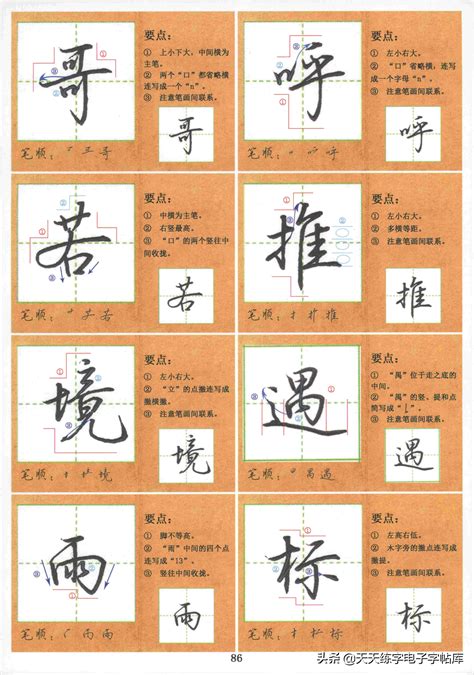 哥
要点：
① 上小下大，中间横为
主笔。
② 两个“口”都省略横
连写成一个“n”。
③ 注意笔画间联系。
哥
笔顺：
呼
要点：
① 左小右大。
② “口”省略横，连写
成一个字母“n”。
③ 注意笔画间联系。
呼
笔顺：
若
要点：
① 中横为主笔。
② 右竖最高。
③ “口”的两个竖往中
间收拢。
若
笔顺：
推
要点：
① 左小右大。
② 多横等距。
③ 注意笔画间联系。
推
笔顺：
境
要点：
① 左小右大。
② “立”的点撇连写成
撇横撇。
③ 注意笔画间联系。
境
笔顺：
遇
要点：
① “禺”位于走之底的
中间。
② “禺”的竖、提和点
简写成“
遇
笔顺：
雨
要点：
① 脚不等高。
② “雨”中间的四个点
连写成“13”。
③ 竖往中间收拢。
雨
笔顺：
标
要点：
① 左高右低。
② 木字旁的撇点连写成
撇提。
③ 注意笔画间联系。
标
笔顺：
86
头条@天天练字电子字帖库